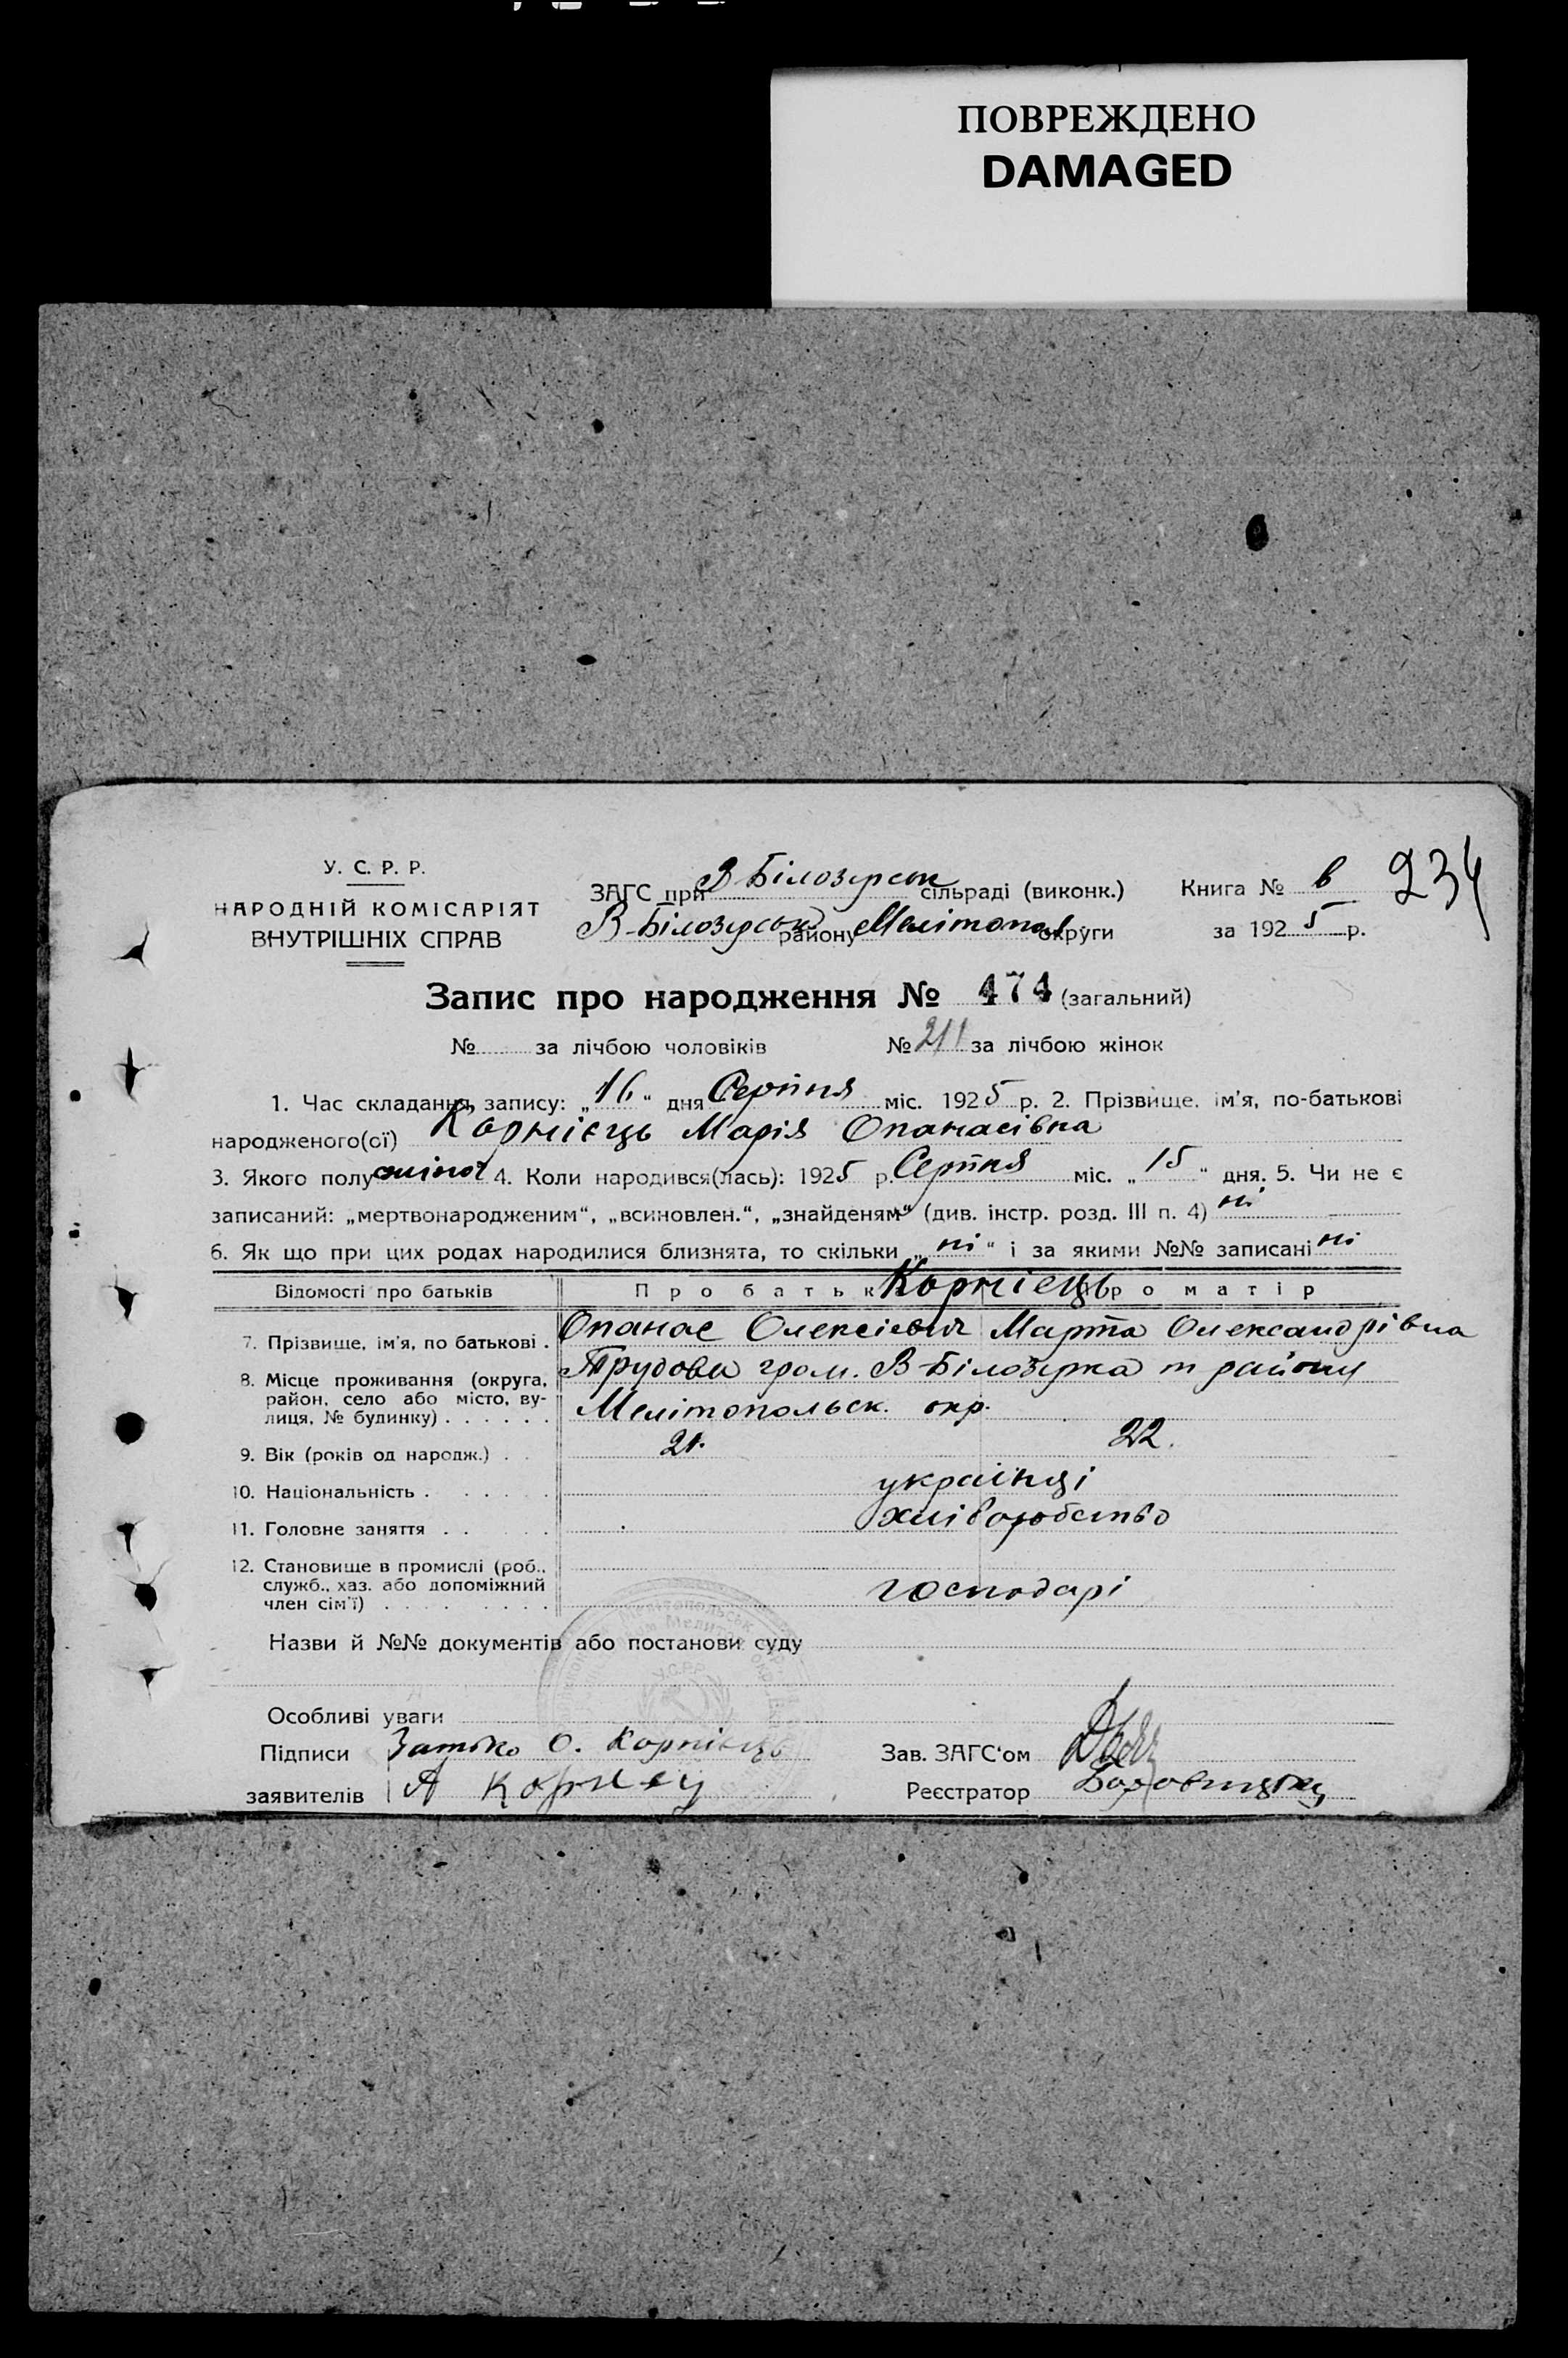 ПОВРЕЖДЕНО
DAMAGED
У. С. Р. Р.
НАРОДНІЙ КОМІСАРІЯТ
ВНУТРІШНІХ СПРАВ
ЗАГС при В-Білозерськ сільраді (виконк.)
В-Білозерськ району Мелітопол округи
Книга № 6 234
за 1925 р.
Запис про народження № 474 (загальний)
№ за лічбою чоловіків № 211 за лічбою жінок
1. Час складання запису: „16“ дня Серпня міс. 1925 р. 2. Прізвище, ім'я, по-батькові
народженого(ої) Корнієць Марія Опанасівна
3. Якого полу жіноч 4. Коли народився(лась): 1925 р. Серпня міс. „15“ дня. 5. Чи не є
записаний: „мертвонародженим“, „всиновлен.“, „знайденям“ (див. інстр. розд. III п. 4) ні
6. Як що при цих родах народилися близнята, то скільки „ні“ і за якими №№ записані ні
Відомості про батьків Про батьк Корнієць Про матір
7. Прізвище, ім'я, по батькові . Опанас Олексієвич Марта Олександрівна
8. Місце проживання (округа, район, село або місто, вулиця, № будинку) . . . . . . Трудова гром. В-Білозерка т району
Мелітопольськ. окр.
9. Вік (років од народж.) . . 21. 22.
10. Національність . . . . . . українці
11. Головне заняття . . . . хліборобство
12. Становище в промислі (роб., служб., хаз. або допоміжний член сім'ї) . . . . . . . . господарі
Назви й №№ документів або постанови суду
Особливі уваги
Підписи О. Корнієць
заявителів А Корнец
Зав. ЗАГС'ом
Реєстратор